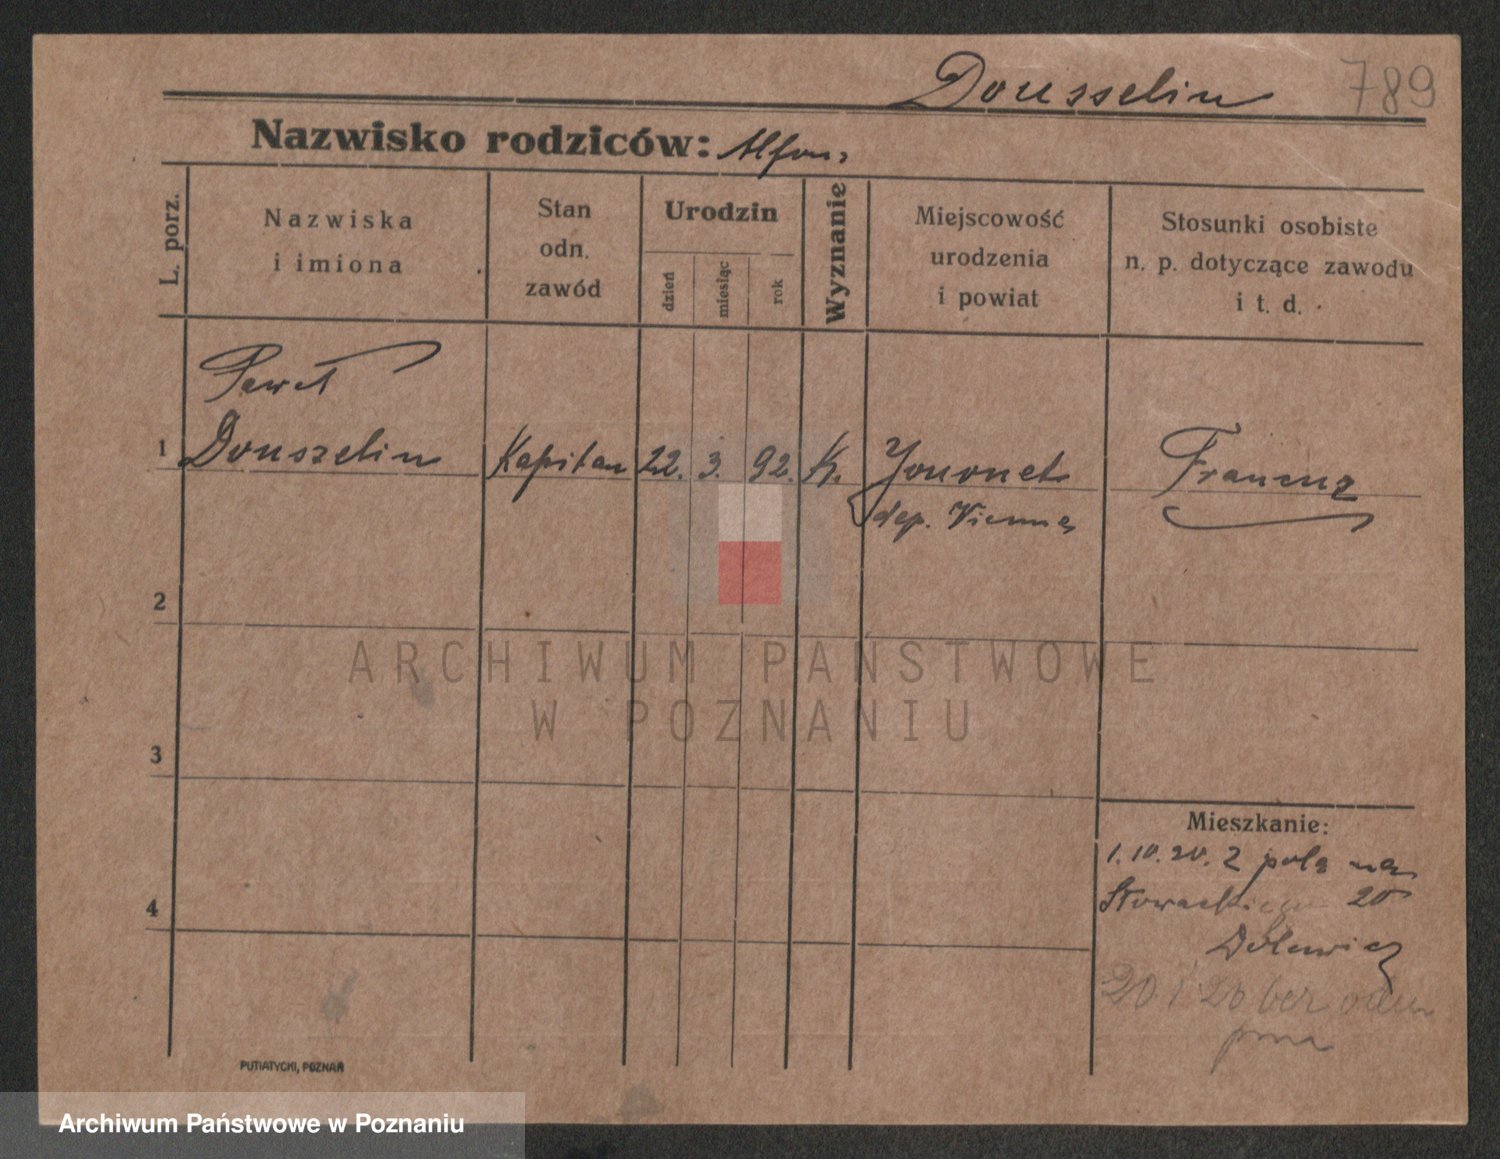 Dousselin 789
Nazwisko rodziców: Alfons
L. porz.
Nazwiska i imiona
Stan odn. zawód
Urodzin
dzień miesiąc rok
Wyznanie
Miejscowość urodzenia i powiat
Stosunki osobiste n. p. dotyczące zawodu i t. d.
Paweł
1 Douszelin Kapitan 22. 3. 92. K. Jouonet Francuz
dep. Vienne
2
3
4
Mieszkanie:
1.10.20. Z pola na
Słowackiego 20
PUTIATYCKI, POZNAŃ
ARCHIWUM PAŃSTWOWE
W POZNANIU
Archiwum Państwowe w Poznaniu